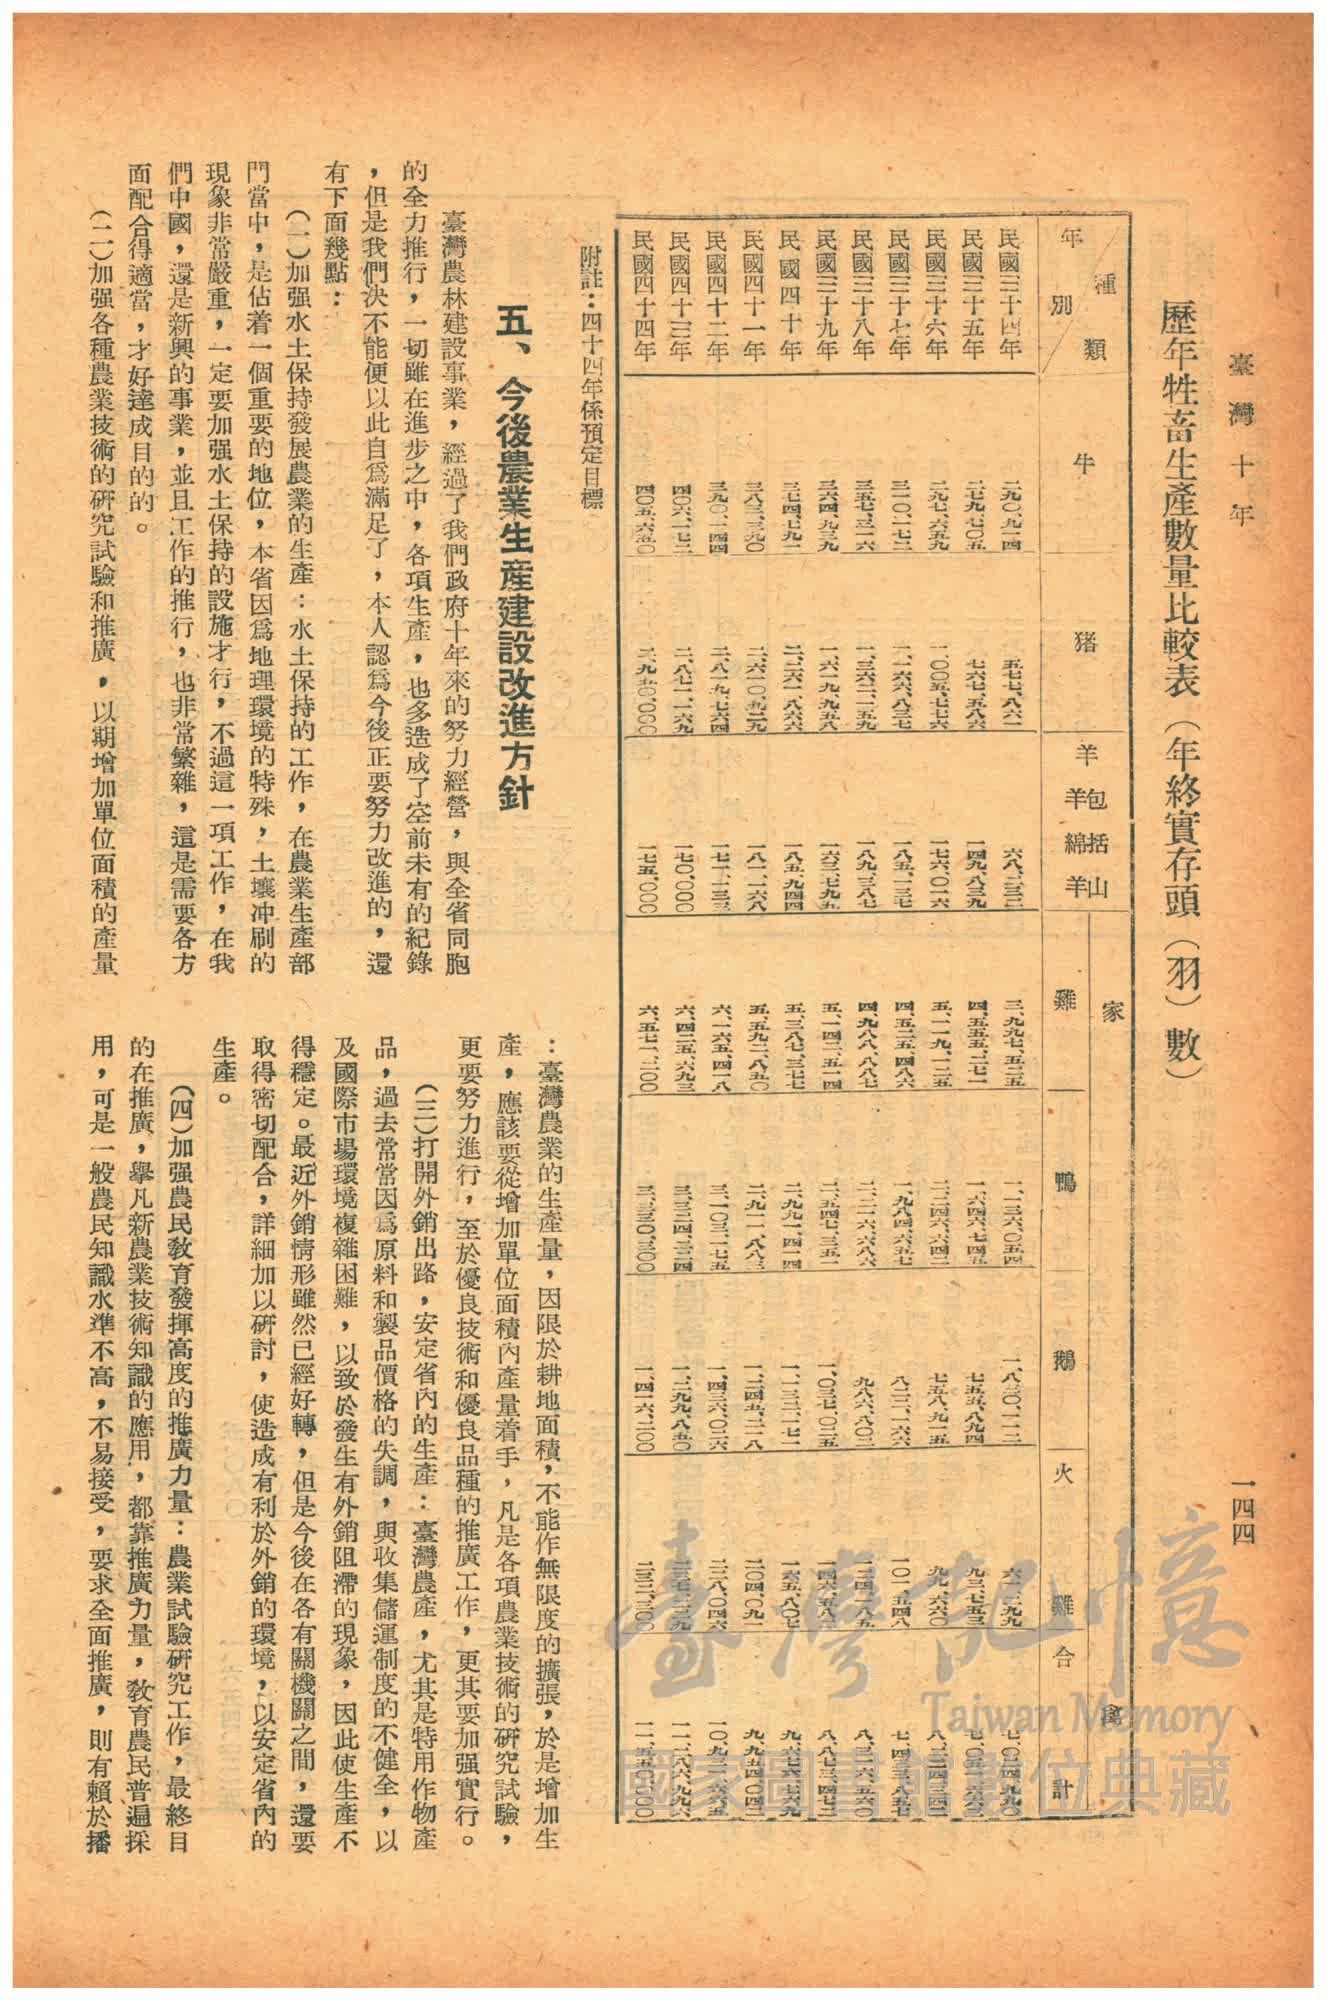 臺灣十年
一四四
歷年牲畜生產數量比較表（年終實存頭（羽）數）
年別 種類 牛 猪 羊包括綿羊山羊 家禽 雞 鴨 鵝 火雞 合計
民國三十四年 二九〇、九一四 五七七、八六一 六八、二三二 三、九九七、五二五 一、一三六、〇五四 一、八三〇、一一二 六一、二九九 七、〇二四、九九〇
民國三十五年 二七九、七〇五 七六七、五八六 一四九、八三九 四、五五五、二七一 一、六四六、七四五 七五五、八九四 九三、七五三 七、〇五一、六六三
民國三十六年 二九七、六五九 一、〇〇五、七七六 一七六、〇一六 五、一一九、一二五 二、二四六、六四二 七五八、九一五 九九、六六〇 八、二二四、三四二
民國三十七年 三一〇、一七二 一、一六六、八三七 一八五、一三七 四、五二五、四八六 一、九八四、六五七 八二二、一六六 一〇一、五四八 七、四三三、八五七
民國三十八年 三五七、三一六 一、三六二、一五九 一八九、三八七 四、九八八、八八七 二、二一六、六八六 九八六、八〇二 一二四、一八五 八、三一六、五六〇
民國三十九年 三六四、九三九 一、六一九、九五八 一六三、七九九 五、一四二、五一四 二、五四七、三五一 一、〇三七、〇二五 一四六、五八二 八、八七三、四七二
民國四十年 三七四、七九一 二、二六一、八六六 一八五、九四四 五、三八七、三七七 二、九九一、四一四 一、一三二、一七一 一六五、八〇七 九、六七六、七六九
民國四十一年 三八三、三九〇 二、六一〇、五二九 一八一、一六八 五、五九二、八五〇 二、九一一、八八三 一、二四五、二一八 二〇四、〇九一 九、九五四、〇四二
民國四十二年 三九〇、一四四 二、八一九、七六四 一七一、一三三 六、一六五、四一八 三、一〇三、一七五 一、四三六、〇二六 二二八、〇四六 一〇、九三二、六六五
民國四十三年 四〇六、一七二 二、八七一、一六九 一七〇、〇〇〇 六、四二五、六九三 三、二三四、二二四 一、二九九、八五〇 二二七、二二九 一一、一八六、九九六
民國四十四年 四〇五、六五〇 二、九五〇、〇〇〇 一七五、〇〇〇 六、五七一、二〇〇 三、二三〇、三〇〇 一、四一六、二〇〇 三三二、三〇〇 一一、五五〇、〇〇〇
附註：四十四年係預定目標
五、今後農業生産建設改進方針
臺灣農林建設事業，經過了我們政府十年來的努力經營，與全省同胞
的全力推行，一切雖在進步之中，各項生產，也多造成了空前未有的紀錄
，但是我們決不能便以此自爲滿足了，本人認爲今後正要努力改進的，還
有下面幾點：
（一）加强水土保持發展農業的生產：水土保持的工作，在農業生產部
門當中，是佔着一個重要的地位，本省因爲地理環境的特殊，土壤冲刷的
現象非常嚴重，一定要加强水土保持的設施才行，不過這一項工作，在我
們中國，還是新興的事業，並且工作的推行，也非常繁雜，這是需要各方
面配合得適當，才好達成目的的。
（二）加强各種農業技術的研究試驗和推廣，以期增加單位面積的產量
：臺灣農業的生產量，因限於耕地面積，不能作無限度的擴張，於是增加生
產，應該要從增加單位面積內產量着手，凡是各項農業技術的研究試驗，
更要努力進行，至於優良技術和優良品種的推廣工作，更其要加强實行。
（三）打開外銷出路，安定省內的生產：臺灣農產，尤其是特用作物產
品，過去常常因爲原料和製品價格的失調，與收集儲運制度的不健全，以
及國際市場環境複雜困難，以致於發生有外銷阻滯的現象，因此使生產不
得穩定。最近外銷情形雖然已經好轉，但是今後在各有關機關之間，還要
取得密切配合，詳細加以研討，使造成有利於外銷的環境，以安定省內的
生產。
（四）加强農民教育發揮高度的推廣力量：農業試驗研究工作，最終目
的在推廣，舉凡新農業技術知識的應用，都靠推廣力量，教育農民普遍採
用，可是一般農民知識水準不高，不易接受，要求全面推廣，則有賴於播
臺灣記憶
Taiwan Memory
國家圖書館數位典藏